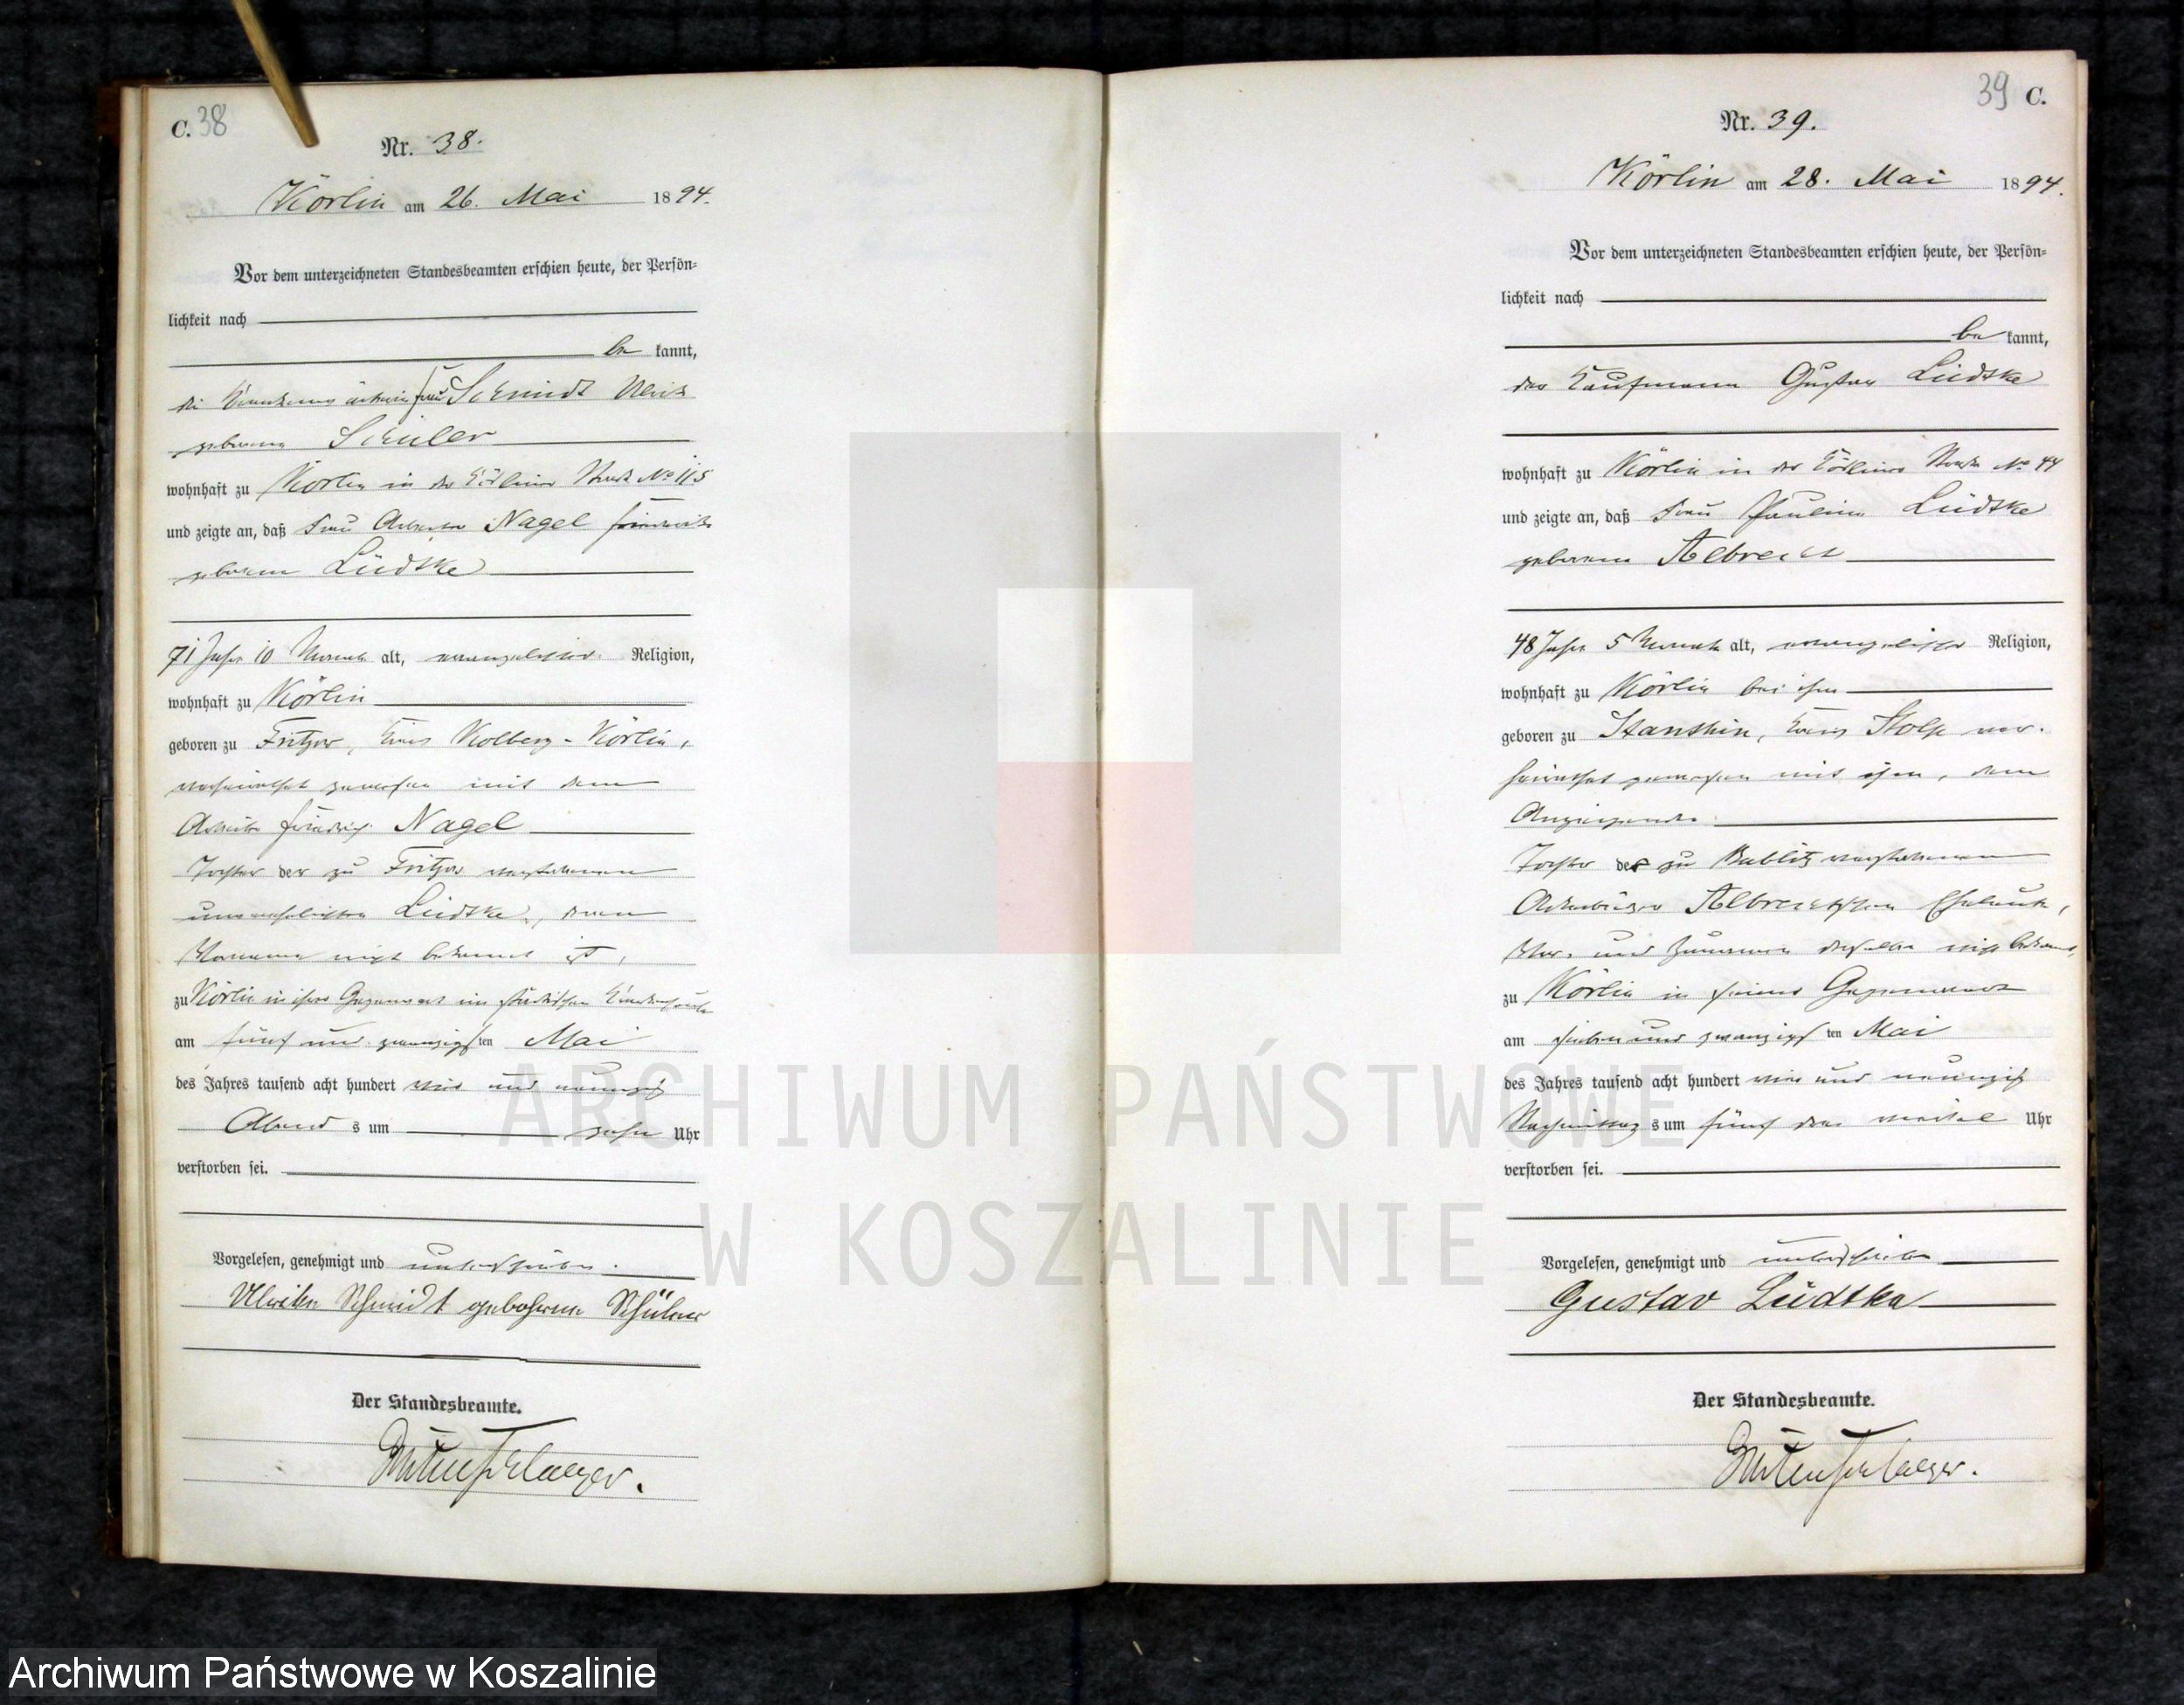 C. 38
Nr. 38.
Körlin am 26. Mai 1894.
Vor dem unterzeichneten Standesbeamten erschien heute, der Persön=
lichkeit nach
be kannt,
die Frau Schmidt Ulrike
geborene Schüler
wohnhaft zu Körlin in der Cösliner Straße No 115
und zeigte an, daß Frau Arbeiter Nagel Friederike
geborene Lüdtke
71 Jahre 10 Monate alt, evangelischer Religion,
wohnhaft zu Körlin
geboren zu Fritzow, Kreis Kolberg-Körlin,
verheirathet gewesen mit dem
Arbeiter Friedrich Nagel
Tochter der zu Fritzow verstorbenen
unverehelichten Lüdtke, deren
Vorname nicht bekannt ist,
zu Körlin in ihrer Gegenwart im städtischen Krankenhause
am fünf und zwanzigsten Mai
des Jahres tausend acht hundert vier und neunzig
Abend s um zehn Uhr
verstorben sei.
Vorgelesen, genehmigt und unterschrieben.
Ulrike Schmidt geborene Schüler
Der Standesbeamte.
39 C.
Nr. 39.
Körlin am 28. Mai 1894.
Vor dem unterzeichneten Standesbeamten erschien heute, der Persön=
lichkeit nach
be kannt,
der Kaufmann Gustav Lüdtke
wohnhaft zu Körlin in der Cösliner Straße No 44
und zeigte an, daß Frau Pauline Lüdtke
geborene Albrecht
48 Jahre 5 Monate alt, evangelischer Religion,
wohnhaft zu Körlin bei ihm
geboren zu Kreis Stolp ver-
heirathet gewesen mit ihm, dem
Anzeigenden
Tochter der zu Bublitz verstorbenen
Ackerbürger Albrechtschen Eheleute,
Vor- und Zunamen derselben nicht bekannt,
zu Körlin in seiner Gegenwart
am sieben und zwanzigs ten Mai
des Jahres tausend acht hundert vier und neunzig
Nachmittag s um fünf drei viertel Uhr
verstorben sei.
Vorgelesen, genehmigt und unterschrieben
Gustav Lüdtke
Der Standesbeamte.
ARCHIWUM PAŃSTWOWE
W KOSZALINIE
Archiwum Państwowe w Koszalinie